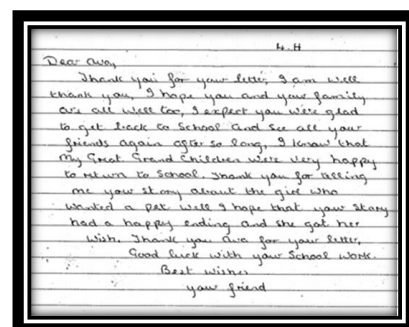 L.H
Dear Ava,
Thank you for your letter, I am well
thank you, I hope you and your family
are all well too, I expect you were glad
to get back to School and see all your
friends again after so long, I know that
my Great Grand Children were very happy
to return to School. Thank you for telling
me your story about the girl who
wanted a pet. Well I hope that your story
had a happy ending and she got her
wish. Thank you Ava for your letter,
Good luck with your School work.
Best wishes
your friend